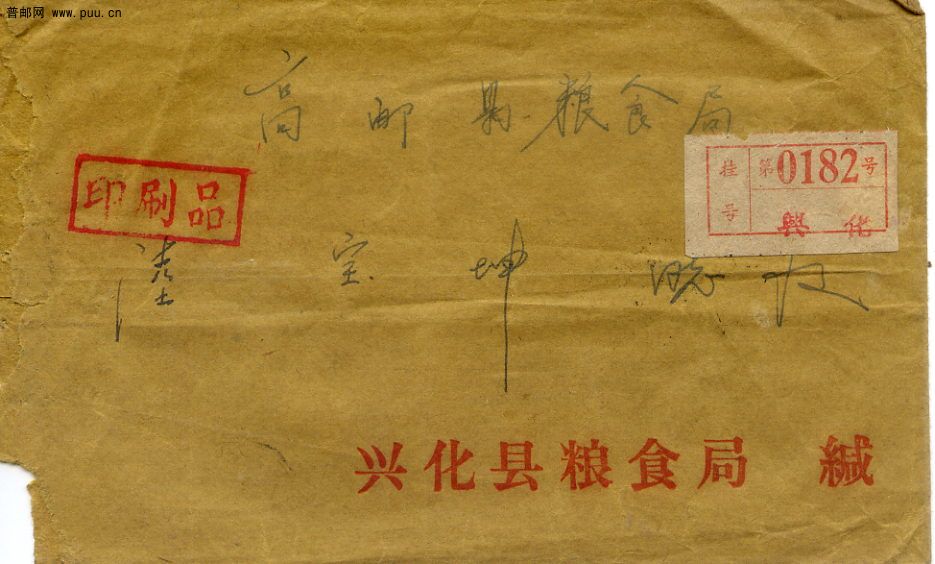 普邮网 www.puu.cn
高邮县粮食局
挂号 第0182号
興化
印刷品
宝坤
兴化县粮食局 缄